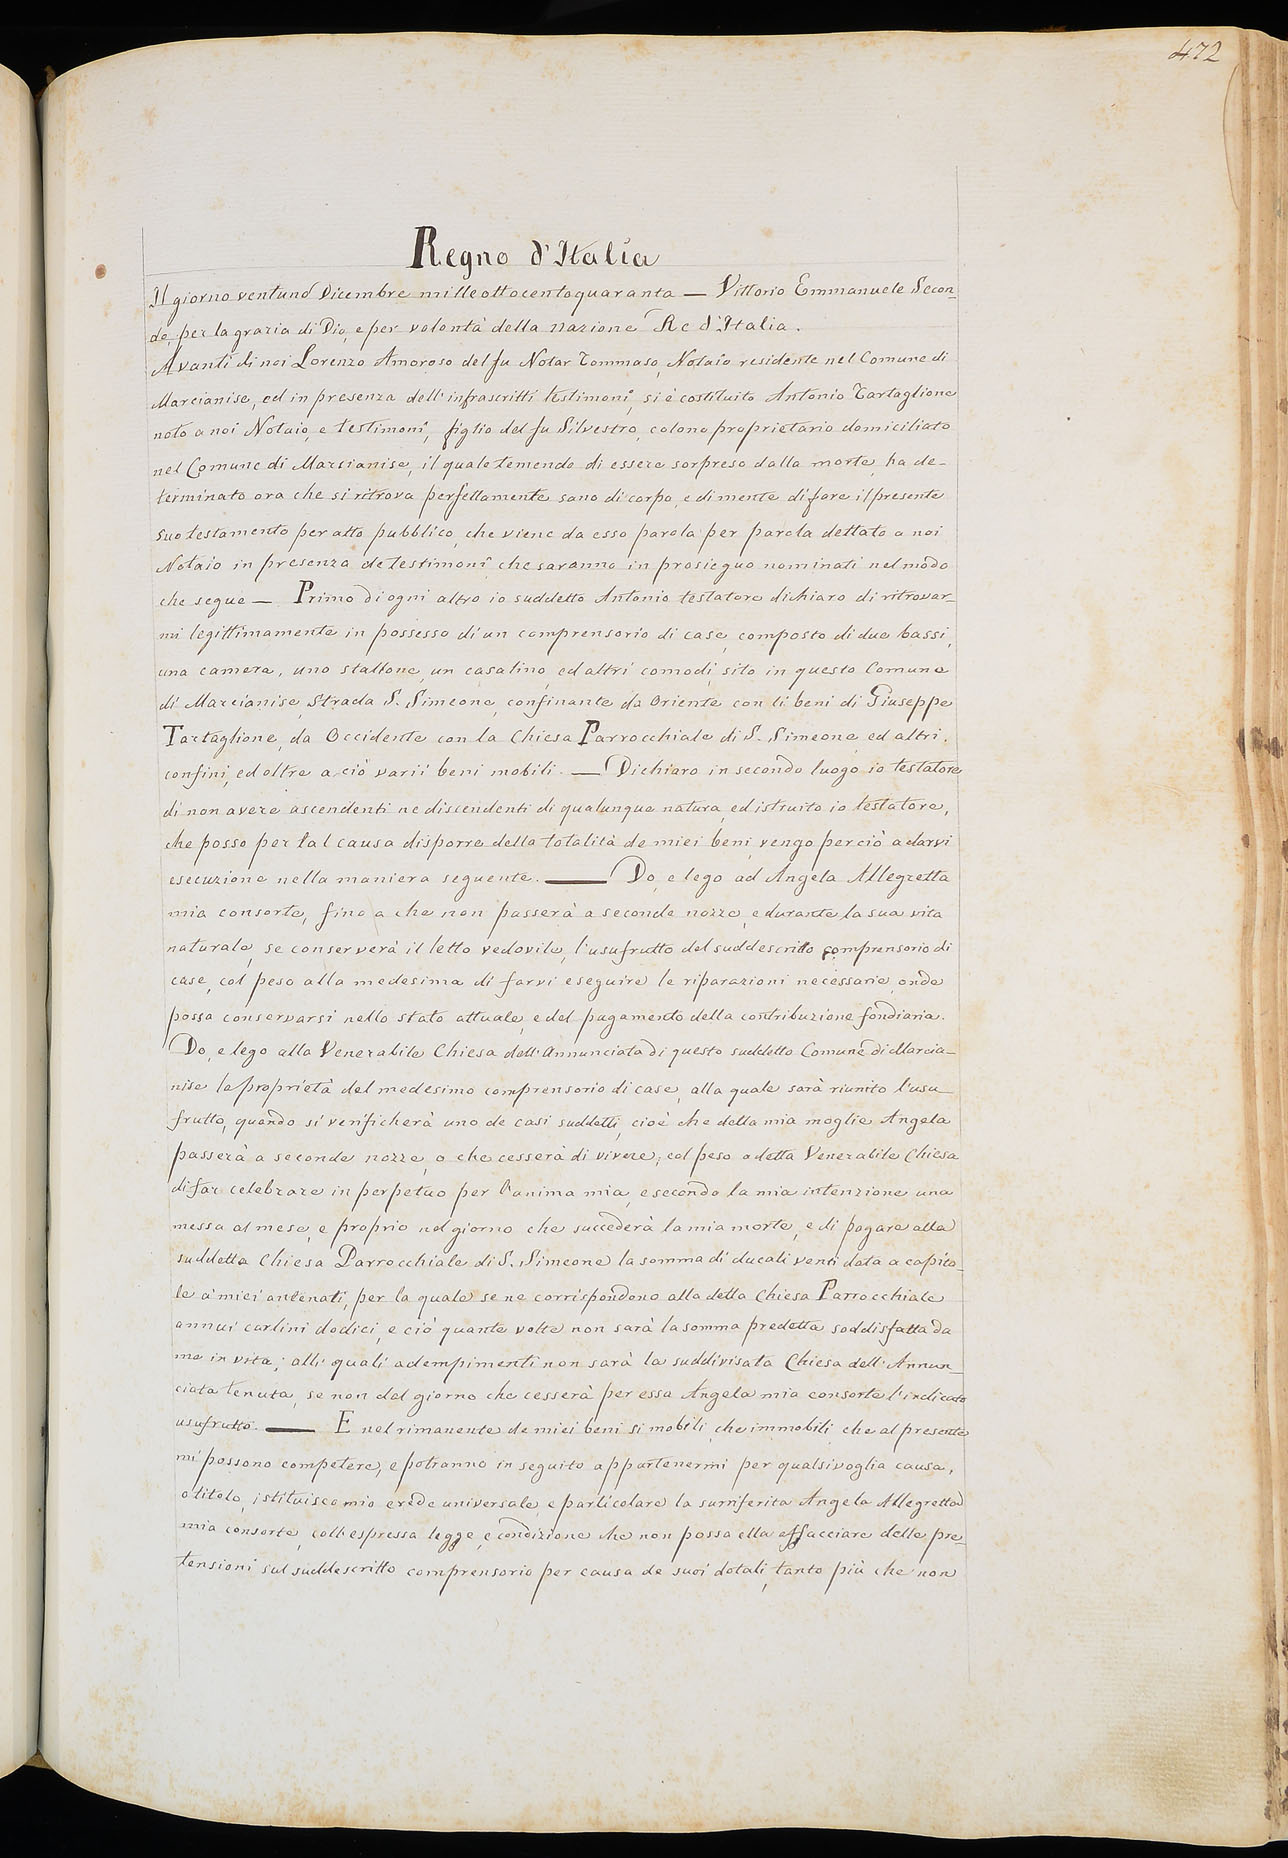 472
Regno d'Italia
Il giorno ventuno Dicembre milleottocentoquaranta — Vittorio Emmanuele Secon-
do, per la grazia di Dio, e per volontà della nazione Re d'Italia.
Avanti di noi Lorenzo Amoroso del fu Notar Tommaso, Notaio residente nel Comune di
Marcianise, ed in presenza dell'infrascritti testimoni, si è costituito Antonio Tartaglione
noto a noi Notaio, e testimoni, figlio del fu Silvestro, colono proprietario domiciliato
nel Comune di Marcianise, il quale temendo di essere sorpreso dalla morte, ha de-
terminato ora che si ritrova perfettamente sano di corpo, e di mente di fare il presente
suo testamento per atto pubblico, che viene da esso parola per parola dettato a noi
Notaio in presenza de testimoni che saranno in prosieguo nominati nel modo
che segue — Primo di ogni altro io suddetto Antonio testatore dichiaro di ritrovar-
mi legittimamente in possesso di un comprensorio di case, composto di due bassi,
una camera, uno stallone, un casalino, ed altri comodi, sito in questo Comune
di Marcianise, Strada S. Simeone, confinante da Oriente con li beni di Giuseppe
Tartaglione, da Occidente con la Chiesa Parrocchiale di S. Simeone, ed altri
confini, ed oltre a ciò varii beni mobili. — Dichiaro in secondo luogo io testatore
di non avere ascendenti ne discendenti di qualunque natura, ed istruito io testatore,
che posso per tal causa disporre della totalità de miei beni, vengo perciò a darvi
esecuzione nella maniera seguente. — Do, e lego ad Angela Allegretta
mia consorte, fino a che non passerà a seconde nozze, e durante la sua vita
naturale, se conserverà il letto vedovile, l'usufrutto del suddescritto comprensorio di
case, col peso alla medesima di farvi eseguire le riparazioni necessarie, onde
possa conservarsi nello stato attuale, e del pagamento della contribuzione fondiaria.
Do, e lego alla Venerabile Chiesa dell'Annunciata di questo suddetto Comune di Marcia-
nise la proprietà del medesimo comprensorio di case, alla quale sarà riunito l'usu-
frutto, quando si verificherà uno de casi suddetti, cioè che della mia moglie Angela
passerà a seconde nozze, o che cesserà di vivere; col peso a detta Venerabile Chiesa
di far celebrare in perpetuo per l'anima mia, e secondo la mia intenzione una
messa al mese, e proprio nel giorno che succederà la mia morte, e di pagare alla
suddetta Chiesa Parrocchiale di S. Simeone la somma di ducati venti data a capita-
le a' miei antenati, per la quale se ne corrispondono alla detta Chiesa Parrocchiale
annui carlini dodici, e ciò quante volte non sarà la somma predetta soddisfatta da
me in vita; alli quali adempimenti non sarà la suddivisata Chiesa dell'Annun-
ciata tenuta, se non dal giorno che cesserà per essa Angela mia consorte l'indicato
usufrutto. — E nel rimanente de miei beni si mobili, che immobili che al presente
mi possono competere, e potranno in seguito appartenermi per qualsivoglia causa,
o titolo, istituisco mio erede universale, e particolare la surriferita Angela Allegretta
mia consorte, coll'espressa legge, e condizione che non possa ella affacciare delle pre-
tensioni sul suddescritto comprensorio per causa de suoi dotali, tanto più che non